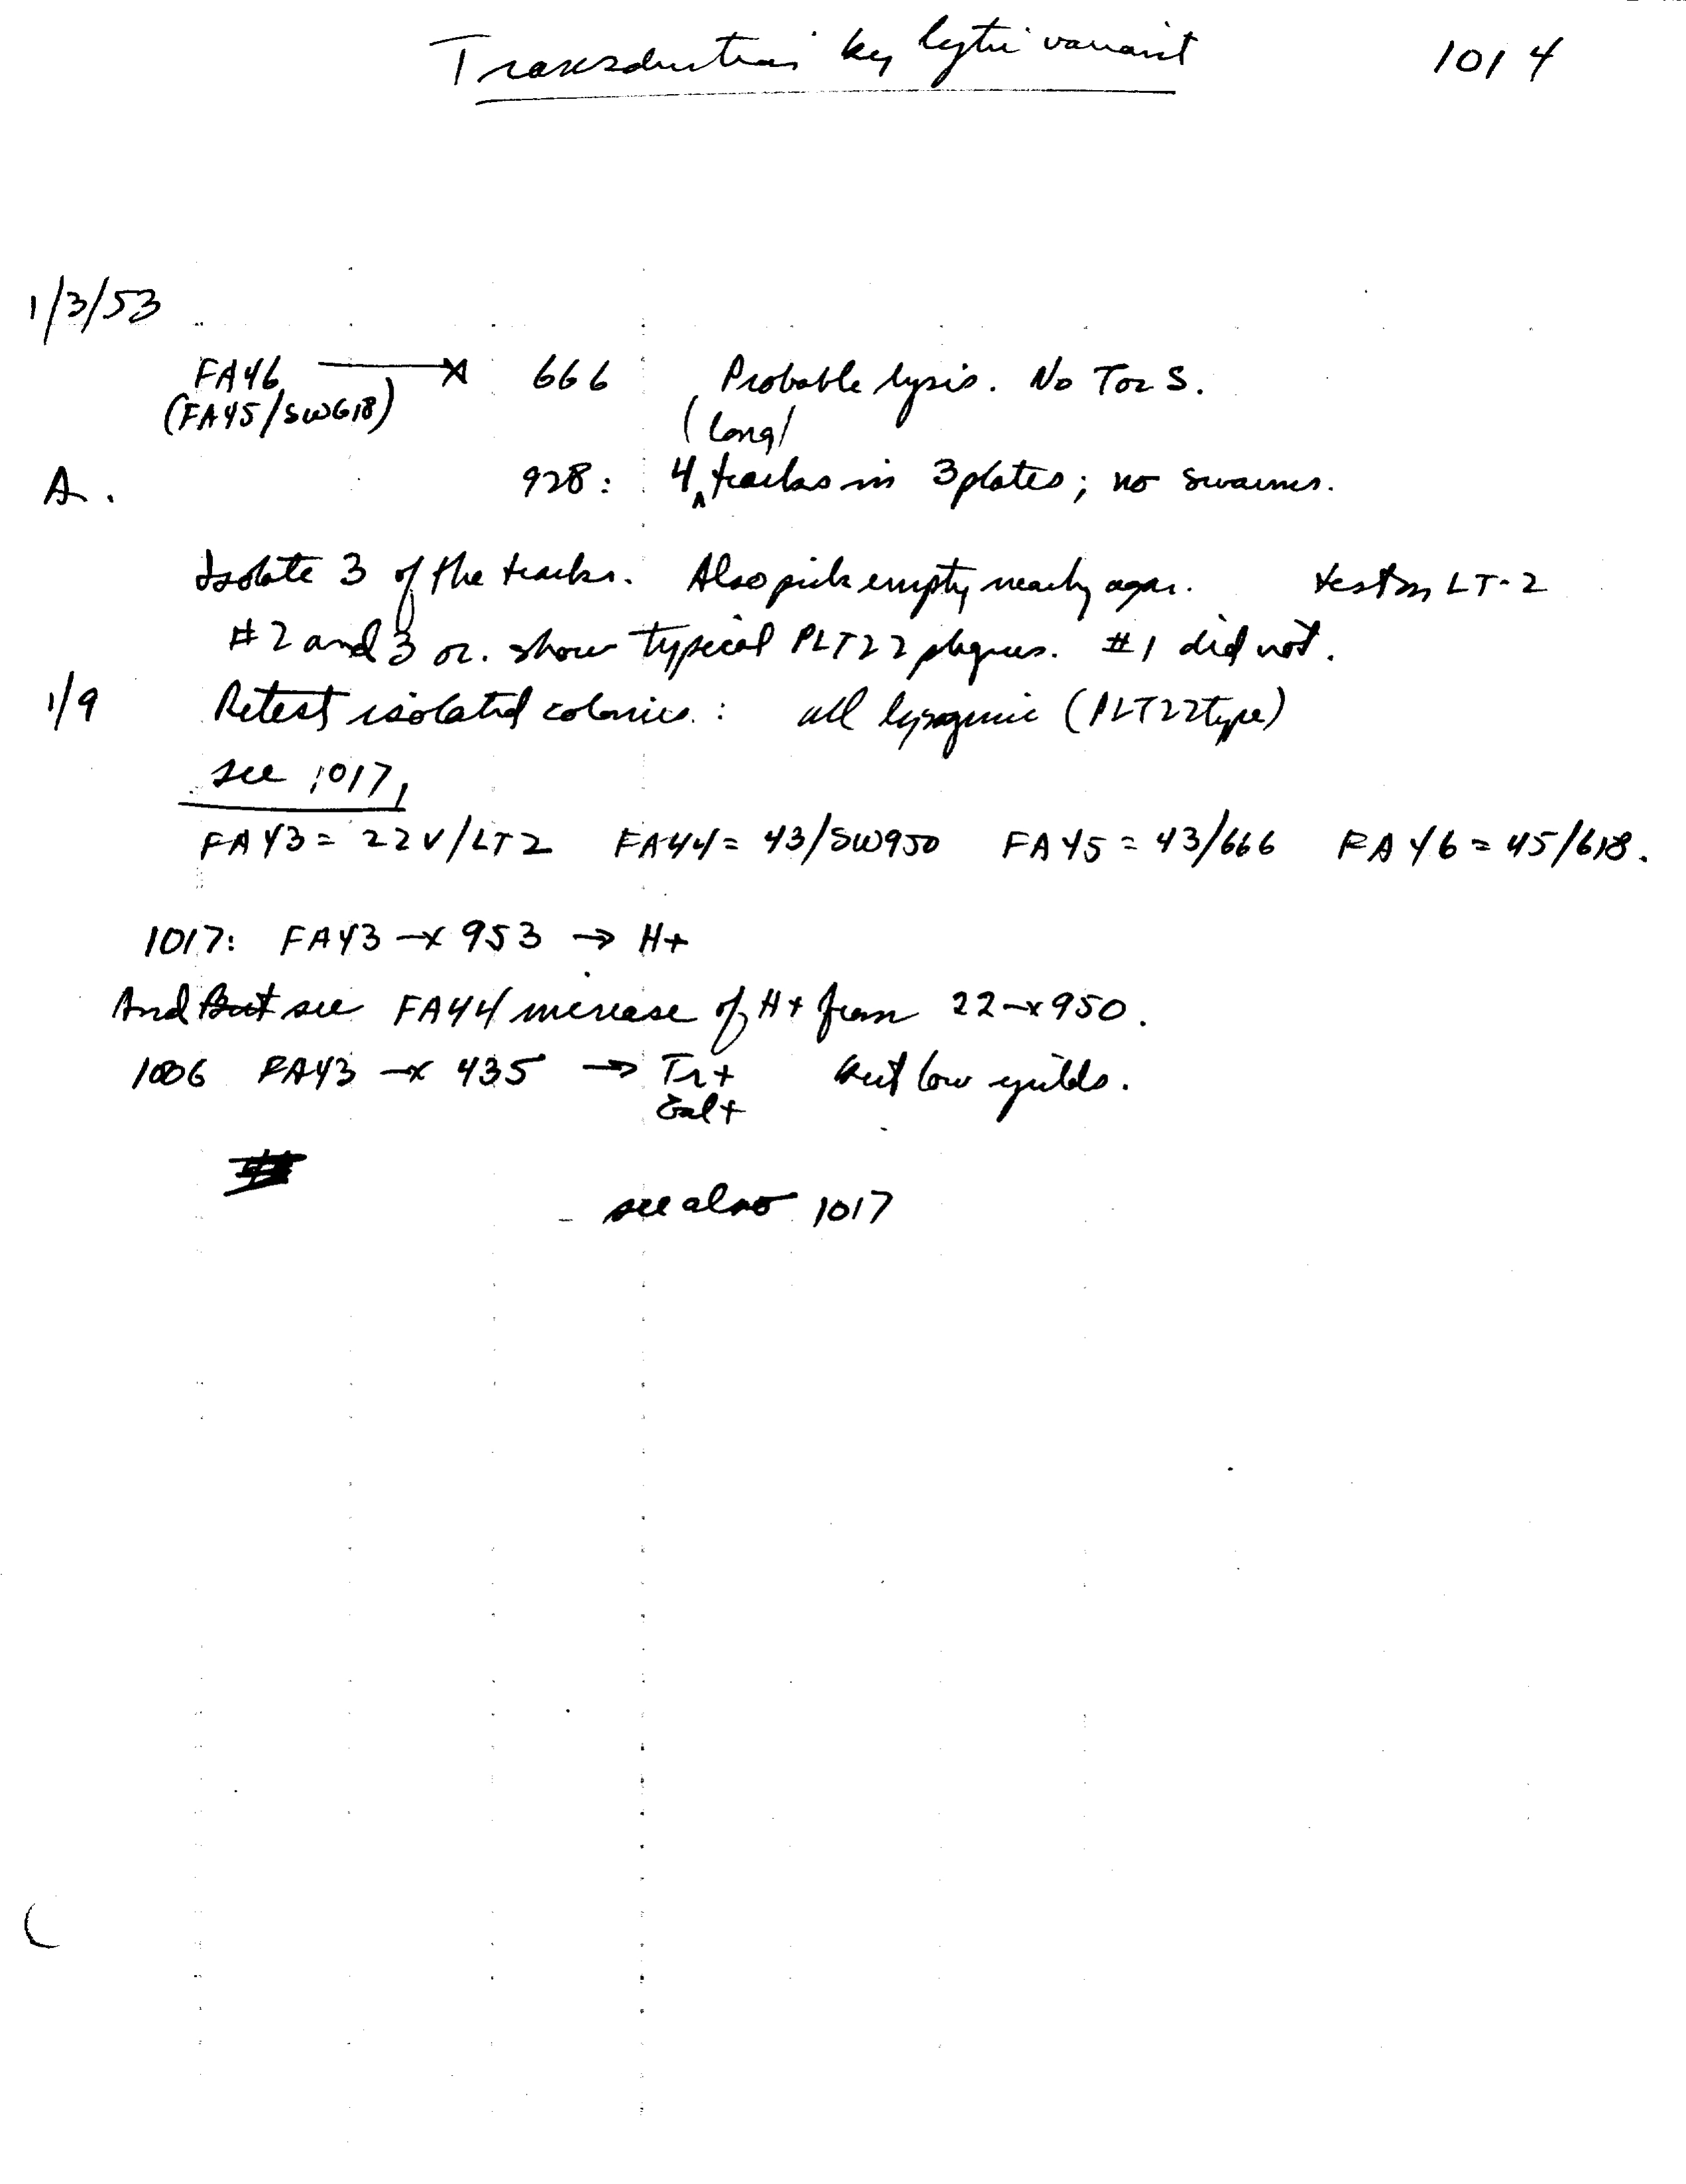 Transduction by lytic variant 1014
1/3/53
FA46 —x 666 Probable lysis. No T or S.
(FA45/SW618)
(long/
A. 928: 4 tracks in 3 plates; no swarms.
Isolate 3 of the tracks. Also pick empty nearby agar. test on LT-2
#2 and 3 or. show typical PLT22 plaques. #1 did not.
1/9 Retest isolated colonies: all lysogenic (PLT22 type)
see 1017,
FA43 = 22V/LT2 FA44 = 43/SW950 FA45 = 43/666 FA46 = 45/618.
1017: FA43 —x 953 → H+
And But see FA44 increase of H+ from 22—x950.
1006 FA43 —x 435 → Tr+ but low yields.
Gal+
see also 1017